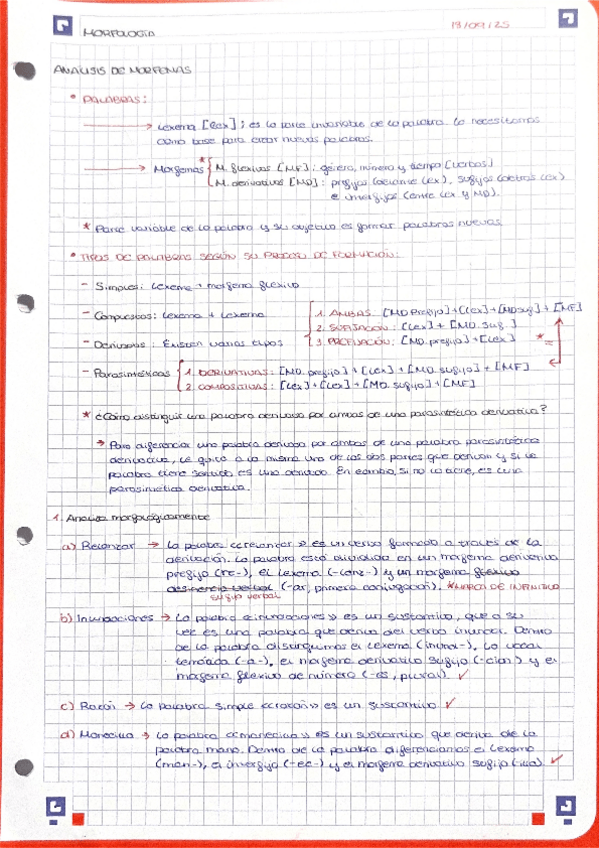 MORFOLOGÍA
19/09/25
ANÁLISIS DE MORFEMAS
• PALABRAS:
→ Lexema [Lex]: es la parte invariable de la palabra. La necesitamos
como base para crear nuevas palabras.
→ Morfemas* { M. flexivos [MF]: género, número y tiempo [verbos]
M. derivativos [MD]: prefijos (delante Lex), sufijos (detrás Lex)
e interfijos (entre Lex y MD).
* Parte variable de la palabra y su objetivo es formar palabras nuevas.
• TIPOS DE PALABRAS SEGÚN SU PROCESO DE FORMACIÓN:
- Simples: Lexema + morfema flexivo
- Compuestas: Lexema + Lexema
- Derivadas: Existen varios tipos
1. AMBAS: [MD.Prefijo]+[Lex]+[MD.Suf]+[MF]
2. SUFIJACIÓN: [Lex]+[MD.Suf]
3. PREFIJACIÓN: [MD.prefijo]+[Lex]
*=
- Parasintéticas { 1. DERIVATIVAS: [MD.prefijo]+[Lex]+[MD.sufijo]+[MF]
2. COMPOSITIVAS: [Lex]+[Lex]+[MD.sufijo]+[MF]
* ¿Cómo distinguir una palabra derivada por ambas de una parasintética derivativa?
→ Para diferenciar una palabra derivada por ambas de una palabra parasintética
derivativa, le quito a la misma una de las dos partes que derivan y si la
palabra tiene sentido es una derivada. En cambio, si no lo tiene, es una
parasintética derivativa.
1. Analiza morfológicamente
a) Relanzar → La palabra «relanzar» es un verbo formado a través de la
derivación. La palabra está dividida en un morfema derivativo
prefijo (re-), el lexema (-lanz-) y un morfema flexivo
desinencia verbal (-ar, primera conjugación). *MARCA DE INFINITIVO
sufijo verbal
b) Inundaciones → La palabra «inundaciones» es un sustantivo, que a su
vez es una palabra que deriva del verbo inundar. Dentro
de la palabra distinguimos el lexema (inund-), la vocal
temática (-a-), el morfema derivativo sufijo (-cion) y el
morfema flexivo de número (-es, plural). ✓
c) Ratón → La palabra simple «ratón» es un sustantivo. ✓
d) Manecilla → La palabra «manecilla» es un sustantivo que deriva de la
palabra mano. Dentro de la palabra diferenciamos el lexema
(man-), el interfijo (-ec-) y el morfema derivativo sufijo (-illa). ✓